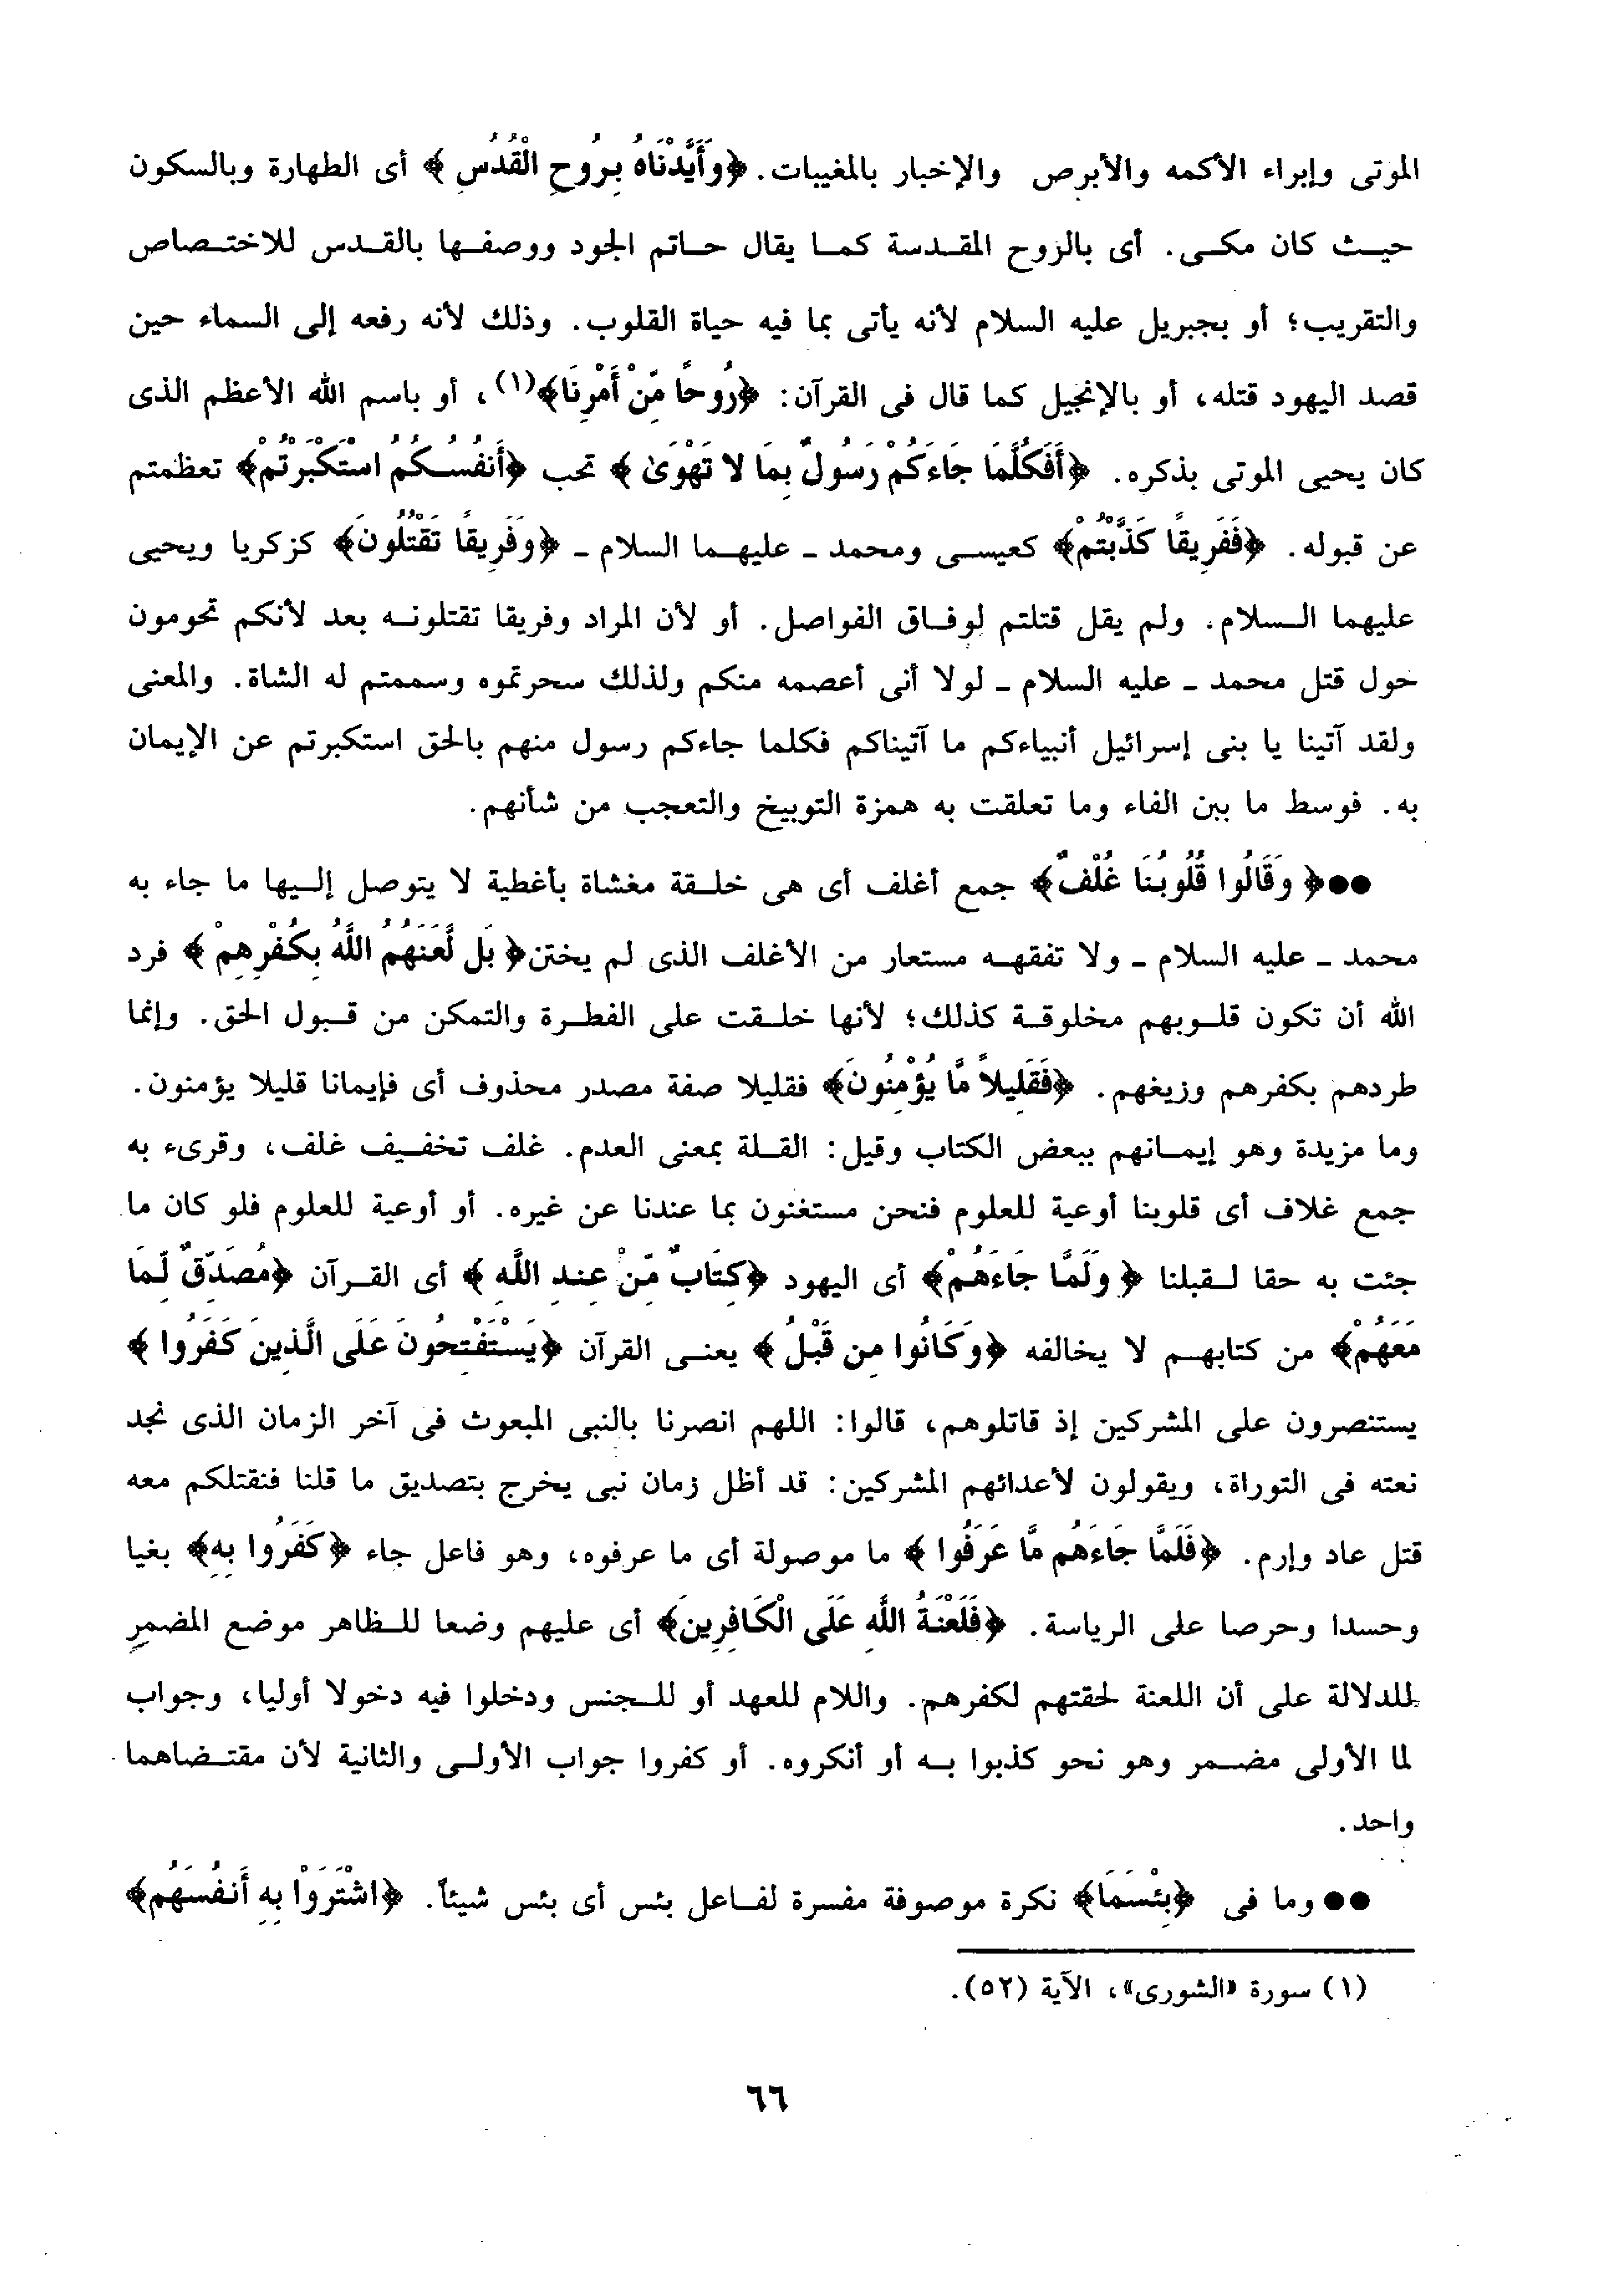 الموتى وإبراء الأكمه والأبرص والإخبار بالمغيبات. ﴿وَأَيَّدْنَاهُ بِرُوحِ الْقُدُسِ﴾ أى الطهارة وبالسكون
حيث كان مكى. أى بالروح المقدسة كما يقال حاتم الجود ووصفها بالقدس للاختصاص
والتقريب؛ أو بجبريل عليه السلام لأنه يأتى بما فيه حياة القلوب. وذلك لأنه رفعه إلى السماء حين
قصد اليهود قتله، أو بالإنجيل كما قال فى القرآن: ﴿رُوحًا مِّنْ أَمْرِنَا﴾(١)، أو باسم الله الأعظم الذى
كان يحيى الموتى بذكره. ﴿أَفَكُلَّمَا جَاءَكُمْ رَسُولٌ بِمَا لا تَهْوَىٰ﴾ تحب ﴿أَنفُسُكُمُ اسْتَكْبَرْتُمْ﴾ تعظمتم
عن قبوله. ﴿فَفَرِيقًا كَذَّبْتُمْ﴾ كعيسى ومحمد ـ عليهما السلام ـ ﴿وَفَرِيقًا تَقْتُلُونَ﴾ كزكريا ويحيى
عليهما السلام. ولم يقل قتلتم لوفاق الفواصل. أو لأن المراد وفريقا تقتلونه بعد لأنكم تحومون
حول قتل محمد ـ عليه السلام ـ لولا أنى أعصمه منكم ولذلك سحرتموه وسممتم له الشاة. والمعنى
ولقد آتينا يا بنى إسرائيل أنبياءكم ما آتيناكم فكلما جاءكم رسول منهم بالحق استكبرتم عن الإيمان
به. فوسط ما بين الفاء وما تعلقت به همزة التوبيخ والتعجب من شأنهم.
●● ﴿وَقَالُوا قُلُوبُنَا غُلْفٌ﴾ جمع أغلف أى هى خلقة مغشاة بأغطية لا يتوصل إليها ما جاء به
محمد ـ عليه السلام ـ ولا تفقهه مستعار من الأغلف الذى لم يختن ﴿بَل لَّعَنَهُمُ اللَّهُ بِكُفْرِهِمْ﴾ فرد
الله أن تكون قلوبهم مخلوقة كذلك؛ لأنها خلقت على الفطرة والتمكن من قبول الحق. وإنما
طردهم بكفرهم وزيغهم. ﴿فَقَلِيلاً مَّا يُؤْمِنُونَ﴾ فقليلا صفة مصدر محذوف أى فإيمانا قليلا يؤمنون.
وما مزيدة وهو إيمانهم ببعض الكتاب وقيل: القلة بمعنى العدم. غلف تخفيف غلف، وقرىء به
جمع غلاف أى قلوبنا أوعية للعلوم فنحن مستغنون بما عندنا عن غيره. أو أوعية للعلوم فلو كان ما
جئت به حقا لقبلنا ﴿وَلَمَّا جَاءَهُمْ﴾ أى اليهود ﴿كِتَابٌ مِّنْ عِندِ اللَّهِ﴾ أى القرآن ﴿مُصَدِّقٌ لِّمَا
مَعَهُمْ﴾ من كتابهم لا يخالفه ﴿وَكَانُوا مِن قَبْلُ﴾ يعنى القرآن ﴿يَسْتَفْتِحُونَ عَلَى الَّذِينَ كَفَرُوا﴾
يستنصرون على المشركين إذ قاتلوهم، قالوا: اللهم انصرنا بالنبى المبعوث فى آخر الزمان الذى نجد
نعته فى التوراة، ويقولون لأعدائهم المشركين: قد أظل زمان نبى يخرج بتصديق ما قلنا فنقتلكم معه
قتل عاد وإرم. ﴿فَلَمَّا جَاءَهُم مَّا عَرَفُوا﴾ ما موصولة أى ما عرفوه، وهو فاعل جاء ﴿كَفَرُوا بِهِ﴾ بغيا
وحسدا وحرصا على الرياسة. ﴿فَلَعْنَةُ اللَّهِ عَلَى الْكَافِرِينَ﴾ أى عليهم وضعا للظاهر موضع المضمر
للدلالة على أن اللعنة لحقتهم لكفرهم. واللام للعهد أو للجنس ودخلوا فيه دخولا أوليا، وجواب
لما الأولى مضمر وهو نحو كذبوا به أو أنكروه. أو كفروا جواب الأولى والثانية لأن مقتضاهما
واحد.
●● وما فى ﴿بِئْسَمَا﴾ نكرة موصوفة مفسرة لفاعل بئس أى بئس شيئاً. ﴿اشْتَرَوْا بِهِ أَنفُسَهُمْ﴾
(١) سورة «الشورى»، الآية (٥٢).
٦٦